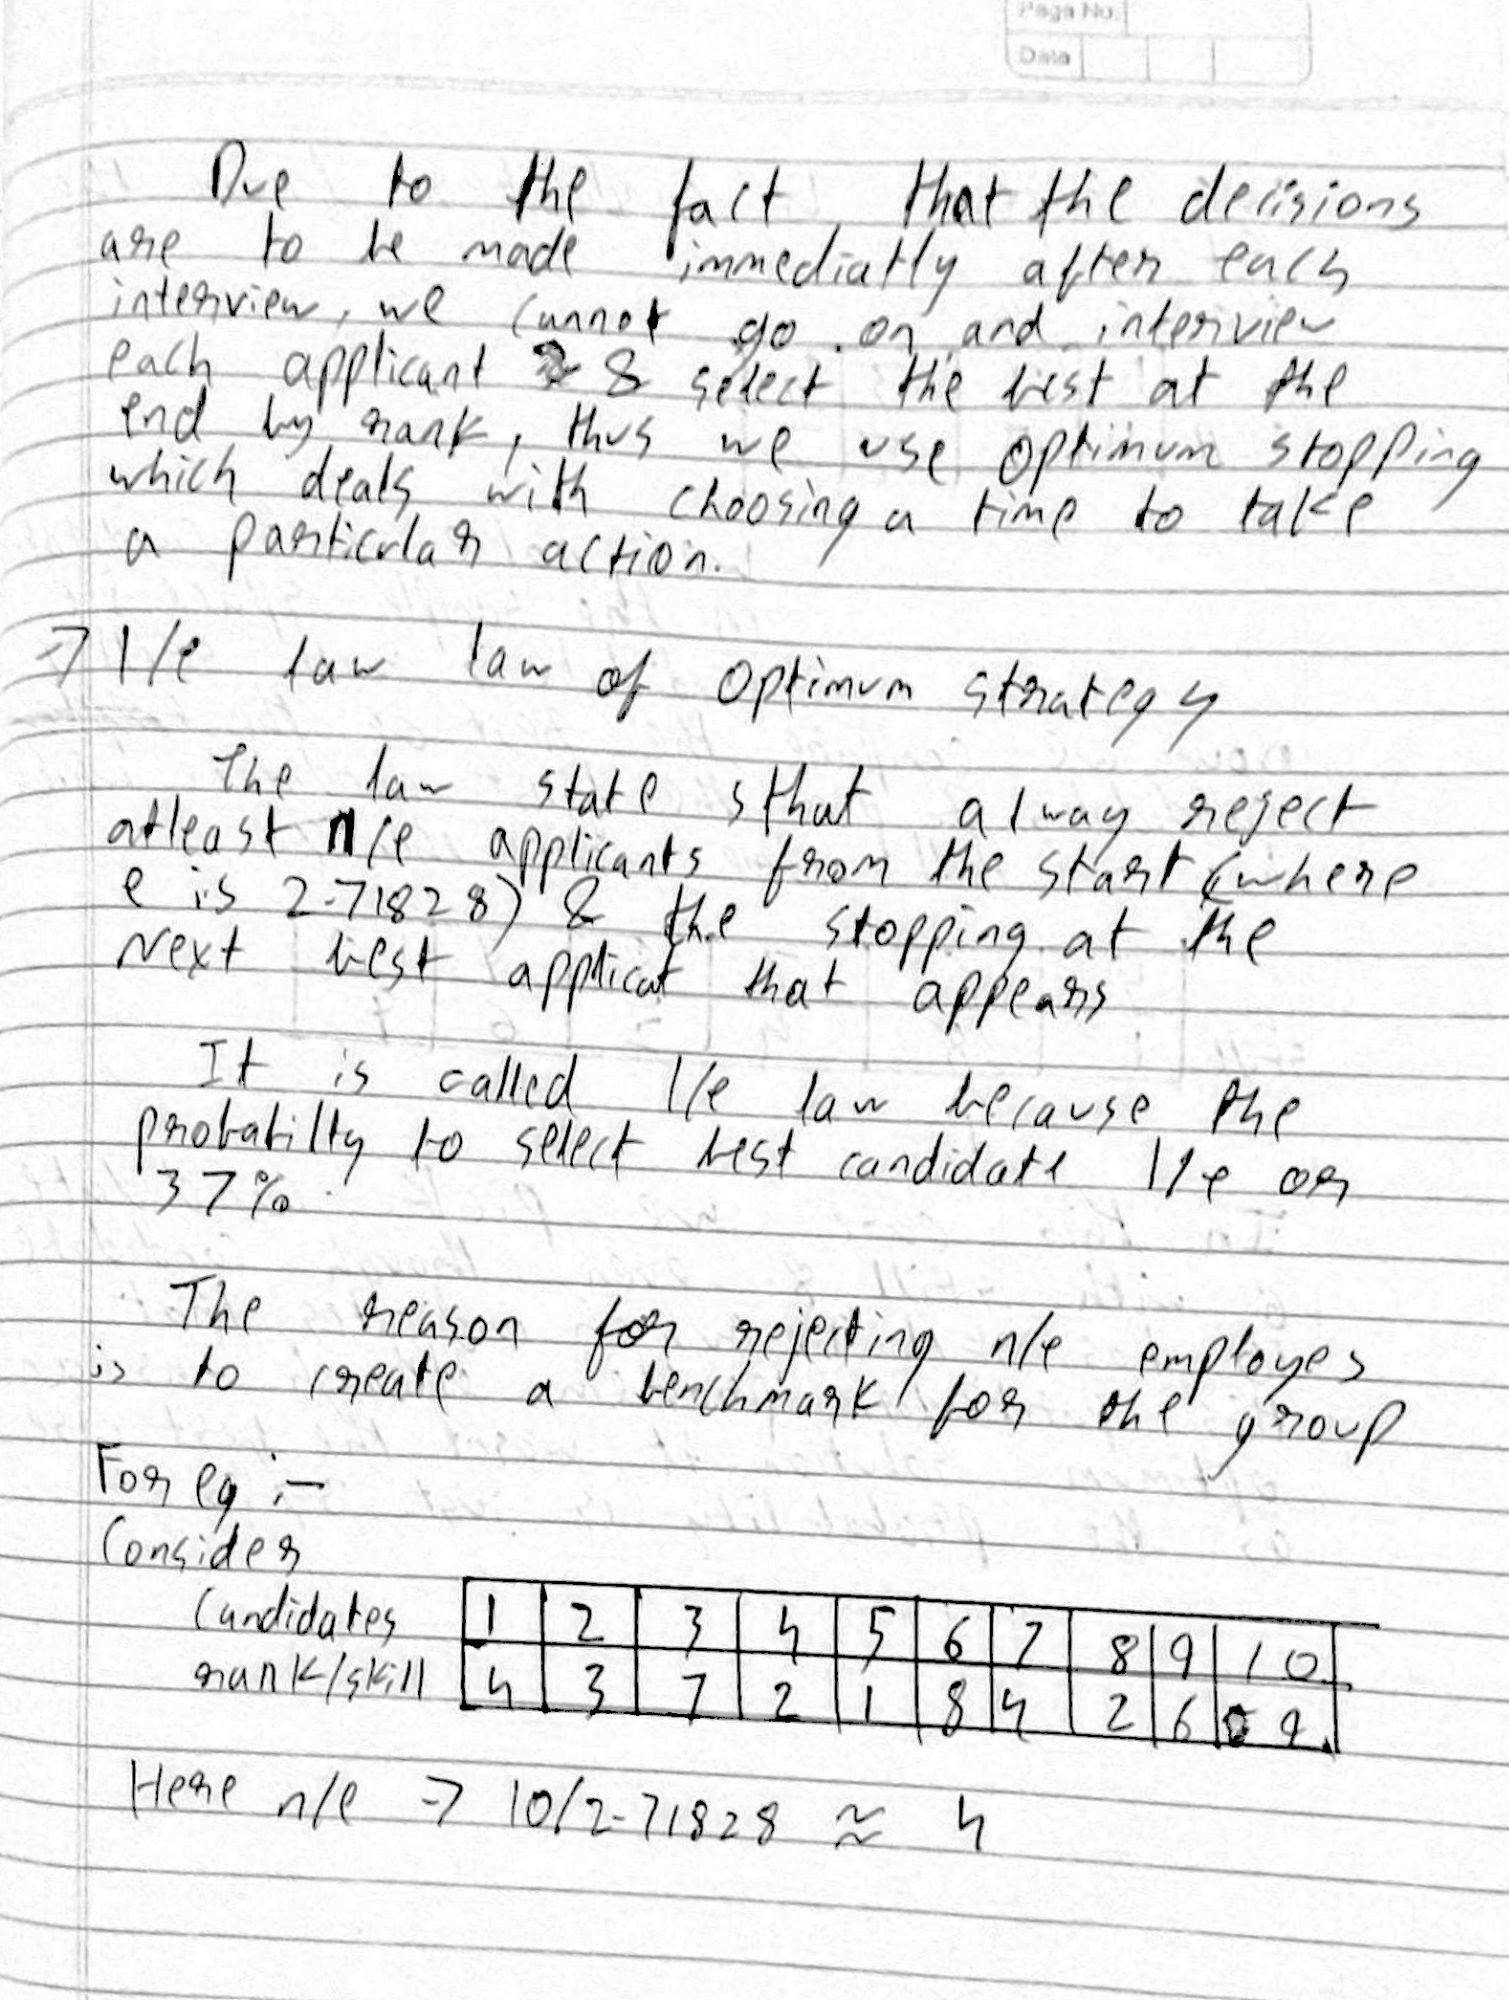 Page No.
Date
Due to the fact, that the decisions
are to be made immediatly after each
interview, we cannot go on and interview
each applicant & select the best at the
end by rank, thus we use optimum stopping
which deals with choosing a time to take
a particular action.
→ 1/e law law of optimum strategy
The law state sthat alway reject
atleast n/e applicants from the start (where
e is 2.71828) & the stopping at the
Next best applicat that appears
It is called 1/e law because the
probabilty to select best candidate 1/e or
37%.
The reason for rejecting n/e employes
is to create a benchmark for the group
For eg :-
Consider
Candidates 1 2 3 4 5 6 7 8 9 10
rank/skill 4 3 7 2 1 8 4 2 6 9
Here n/e → 10/2.71828 ≈ 4